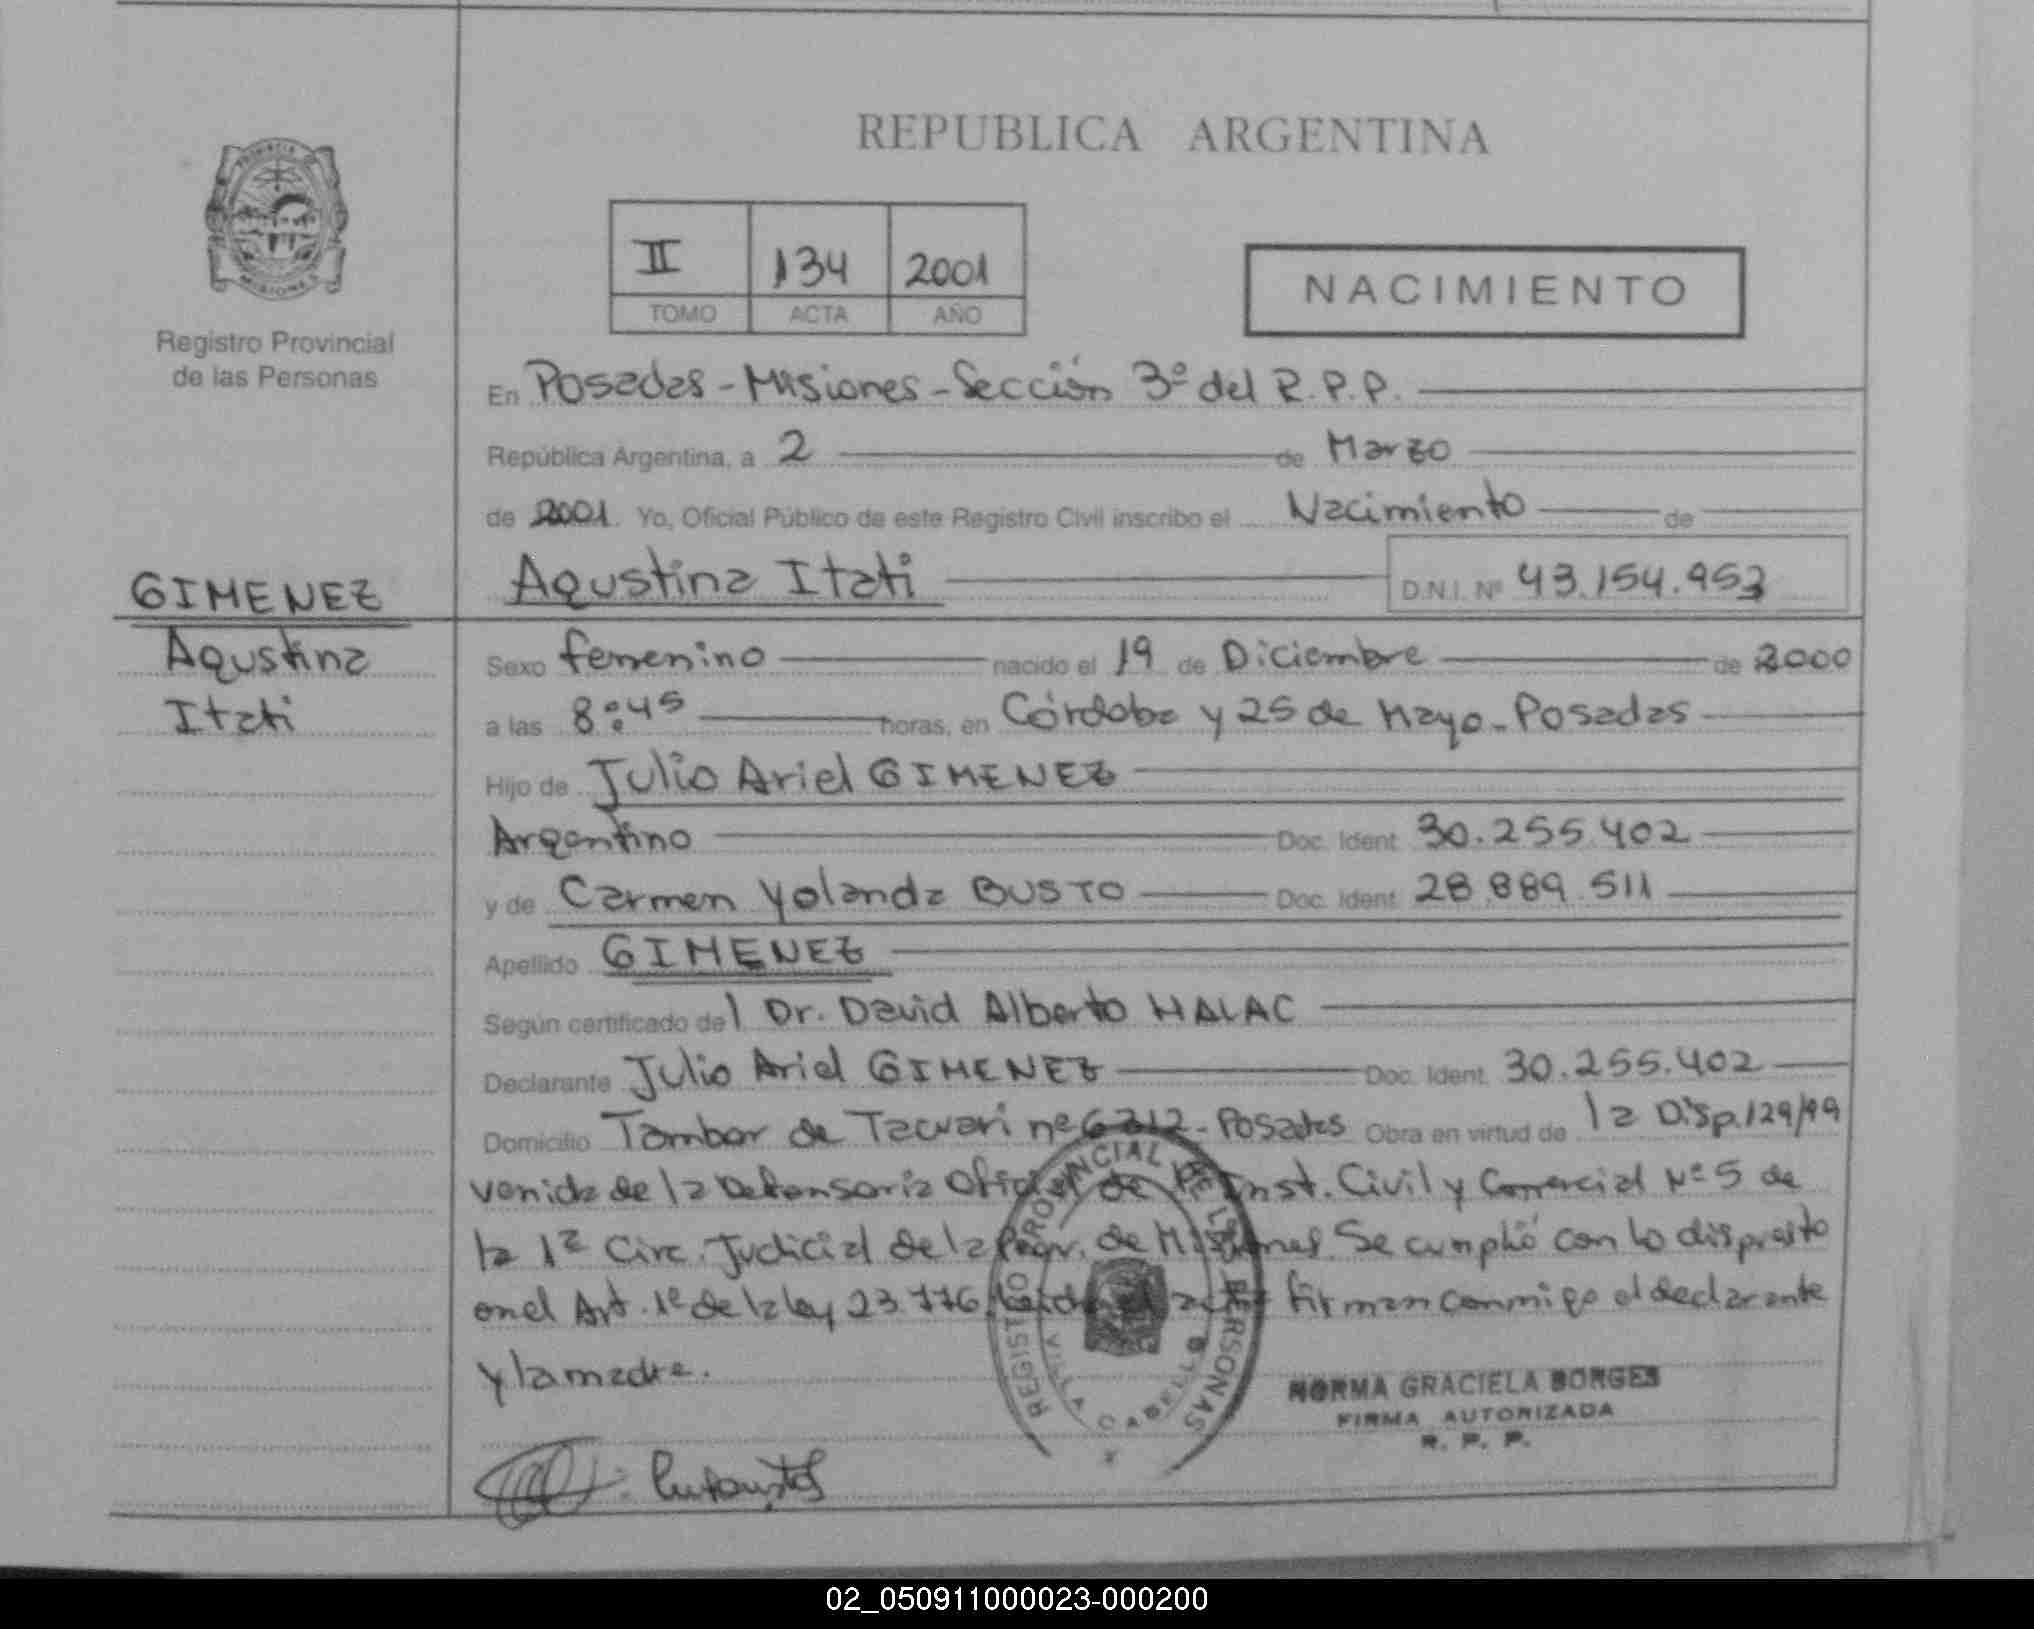 REPUBLICA ARGENTINA
PROVINCIA DE MISIONES
Registro Provincial
de las Personas
II 134 2001
TOMO ACTA AÑO
NACIMIENTO
En Posadas - Misiones - Sección 3º del R.P.P.
República Argentina, a 2 de Marzo
de 2001. Yo, Oficial Público de este Registro Civil inscribo el Nacimiento de
GIMENEZ
Agustina
Itati
Agustina Itati D.N.I. Nº 43.154.953
Sexo femenino nacido el 19 de Diciembre de 2000
a las 8:45 horas, en Córdoba y 25 de Mayo - Posadas
Hijo de Julio Ariel GIMENEZ
Argentino Doc. Ident. 30.255.402
y de Carmen Yolanda BUSTO Doc. Ident. 28.889.511
Apellido GIMENEZ
Según certificado del Dr. David Alberto HALAC
Declarante Julio Ariel GIMENEZ Doc. Ident. 30.255.402
Domicilio Tambor de Tacuari nº 6212 - Posadas Obra en virtud de la Disp. 129/99
venida de la Defensoria Oficial de 1º Inst. Civil y Comercial Nº 5 de
la 1ª Circ. Judicial de la Pcia. de Misiones. Se cumplió con lo dispuesto
en el Art. 1º de la ley 23.776. Leida el acta firman conmigo el declarante
y la madre.
REGISTRO PROVINCIAL DE LAS PERSONAS
VILLA CABELLO
NORMA GRACIELA BORGES
FIRMA AUTORIZADA
R. P. P.
02_050911000023-000200